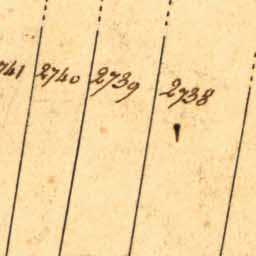 2740 2739 2738